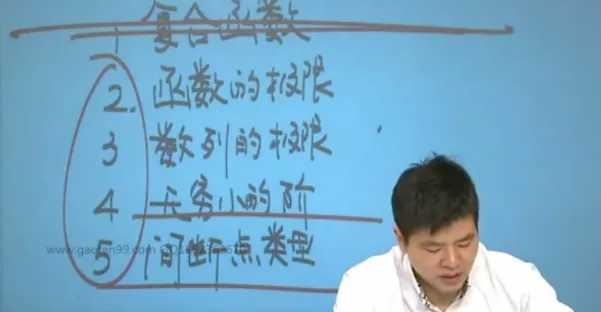 1 复合函数
2. 函数的极限
3 数列的极限
4 无穷小的阶
5 间断点类型